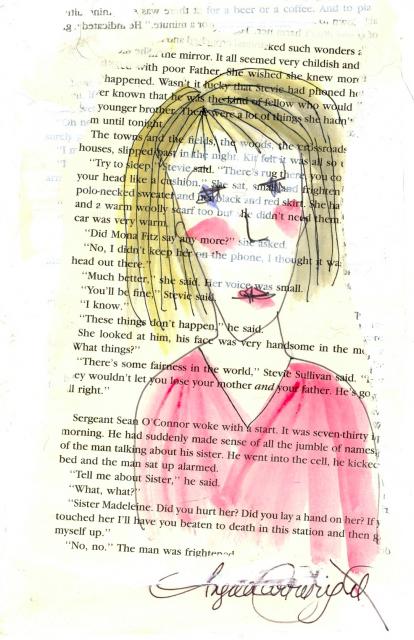 for a beer or a coffee. And to
for a minute." He indicated
ked such wonders
the mirror. It all seemed very childish and
with poor Father. She wished she knew more
happened. Wasn't it lucky that Stevie had phoned
er known that he was the kind of fellow who would
younger brother. There were a lot of things she hadn't
until tonight.
The towns and the fields, the woods, the crossroads
houses, slipped past in the night. Kit felt it was all so
"Try to sleep," Stevie said. "There's a rug there, you co
your head like a cushion." She sat, small and frighten
polo-necked sweater and black and red skirt. She ha
and a warm woolly scarf too but she didn't need them.
car was very warm.
"Did Mona Fitz say any more?" she asked.
"No, I didn't keep her on the phone, I thought it wa
head out there."
"Much better," she said. Her voice was small.
"You'll be fine," Stevie said.
"I know."
"These things don't happen," he said.
She looked at him, his face was very handsome in the mo
What things?"
"There's some fairness in the world," Stevie Sullivan said.
ey wouldn't let you lose your mother and your father. He's go
ll right."
Sergeant Sean O'Connor woke with a start. It was seven-thirty i
morning. He had suddenly made sense of all the jumble of names,
of the man talking about his sister. He went into the cell, he kicked
bed and the man sat up alarmed.
"Tell me about Sister," he said.
"What, what?"
"Sister Madeleine. Did you hurt her? Did you lay a hand on her? If y
touched her I'll have you beaten to death in this station and then g
myself up."
"No, no." The man was frightened